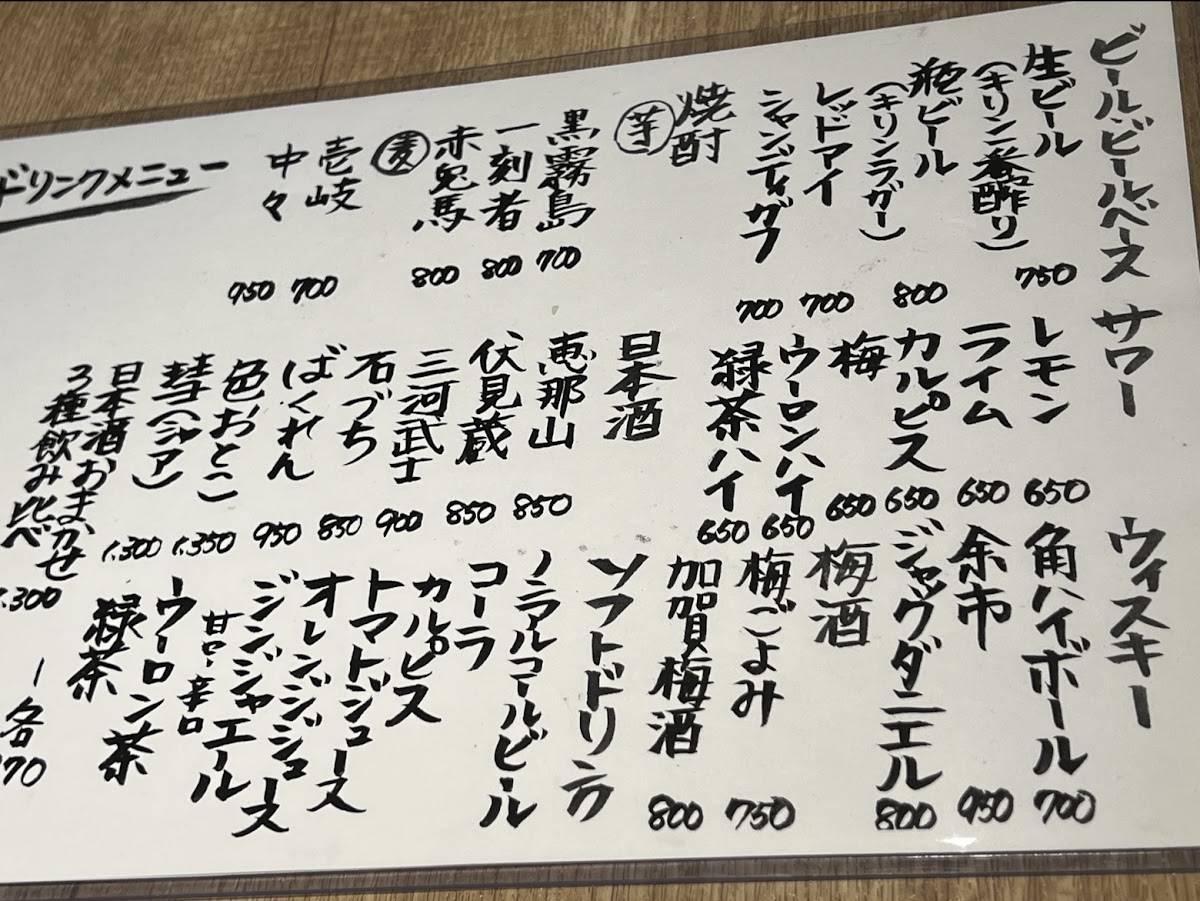 ビール・ビールベース
生ビール
(キリン一番酢り) 750
瓶ビール
(キリンラガー) 800
レッドアイ 700
シャンディガフ 700
焼酎
芋
黒霧島 700
一刻者 800
赤兎馬 800
麦
壱岐 700
中々 950
ドリンクメニュー
サワー
レモン 650
ライム 650
カルピス 650
梅 650
ウーロンハイ 650
緑茶ハイ 650
日本酒
恵那山 850
伏見蔵 850
三河武士 900
石づち 850
ばくれん 950
色おとこ 1.350
彗(シャア) 1.300
日本酒おまかせ
3種飲み比べ .300
ウィスキー
角ハイボール 700
余市 950
ジャックダニエル 800
梅酒
梅ごよみ 750
加賀梅酒 800
ソフトドリンク
ノンアルコールビール
コーラ
カルピス
トマトジュース
オレンジジュース
ジンジャエール
甘口・辛口
ウーロン茶
緑茶
ー各
70